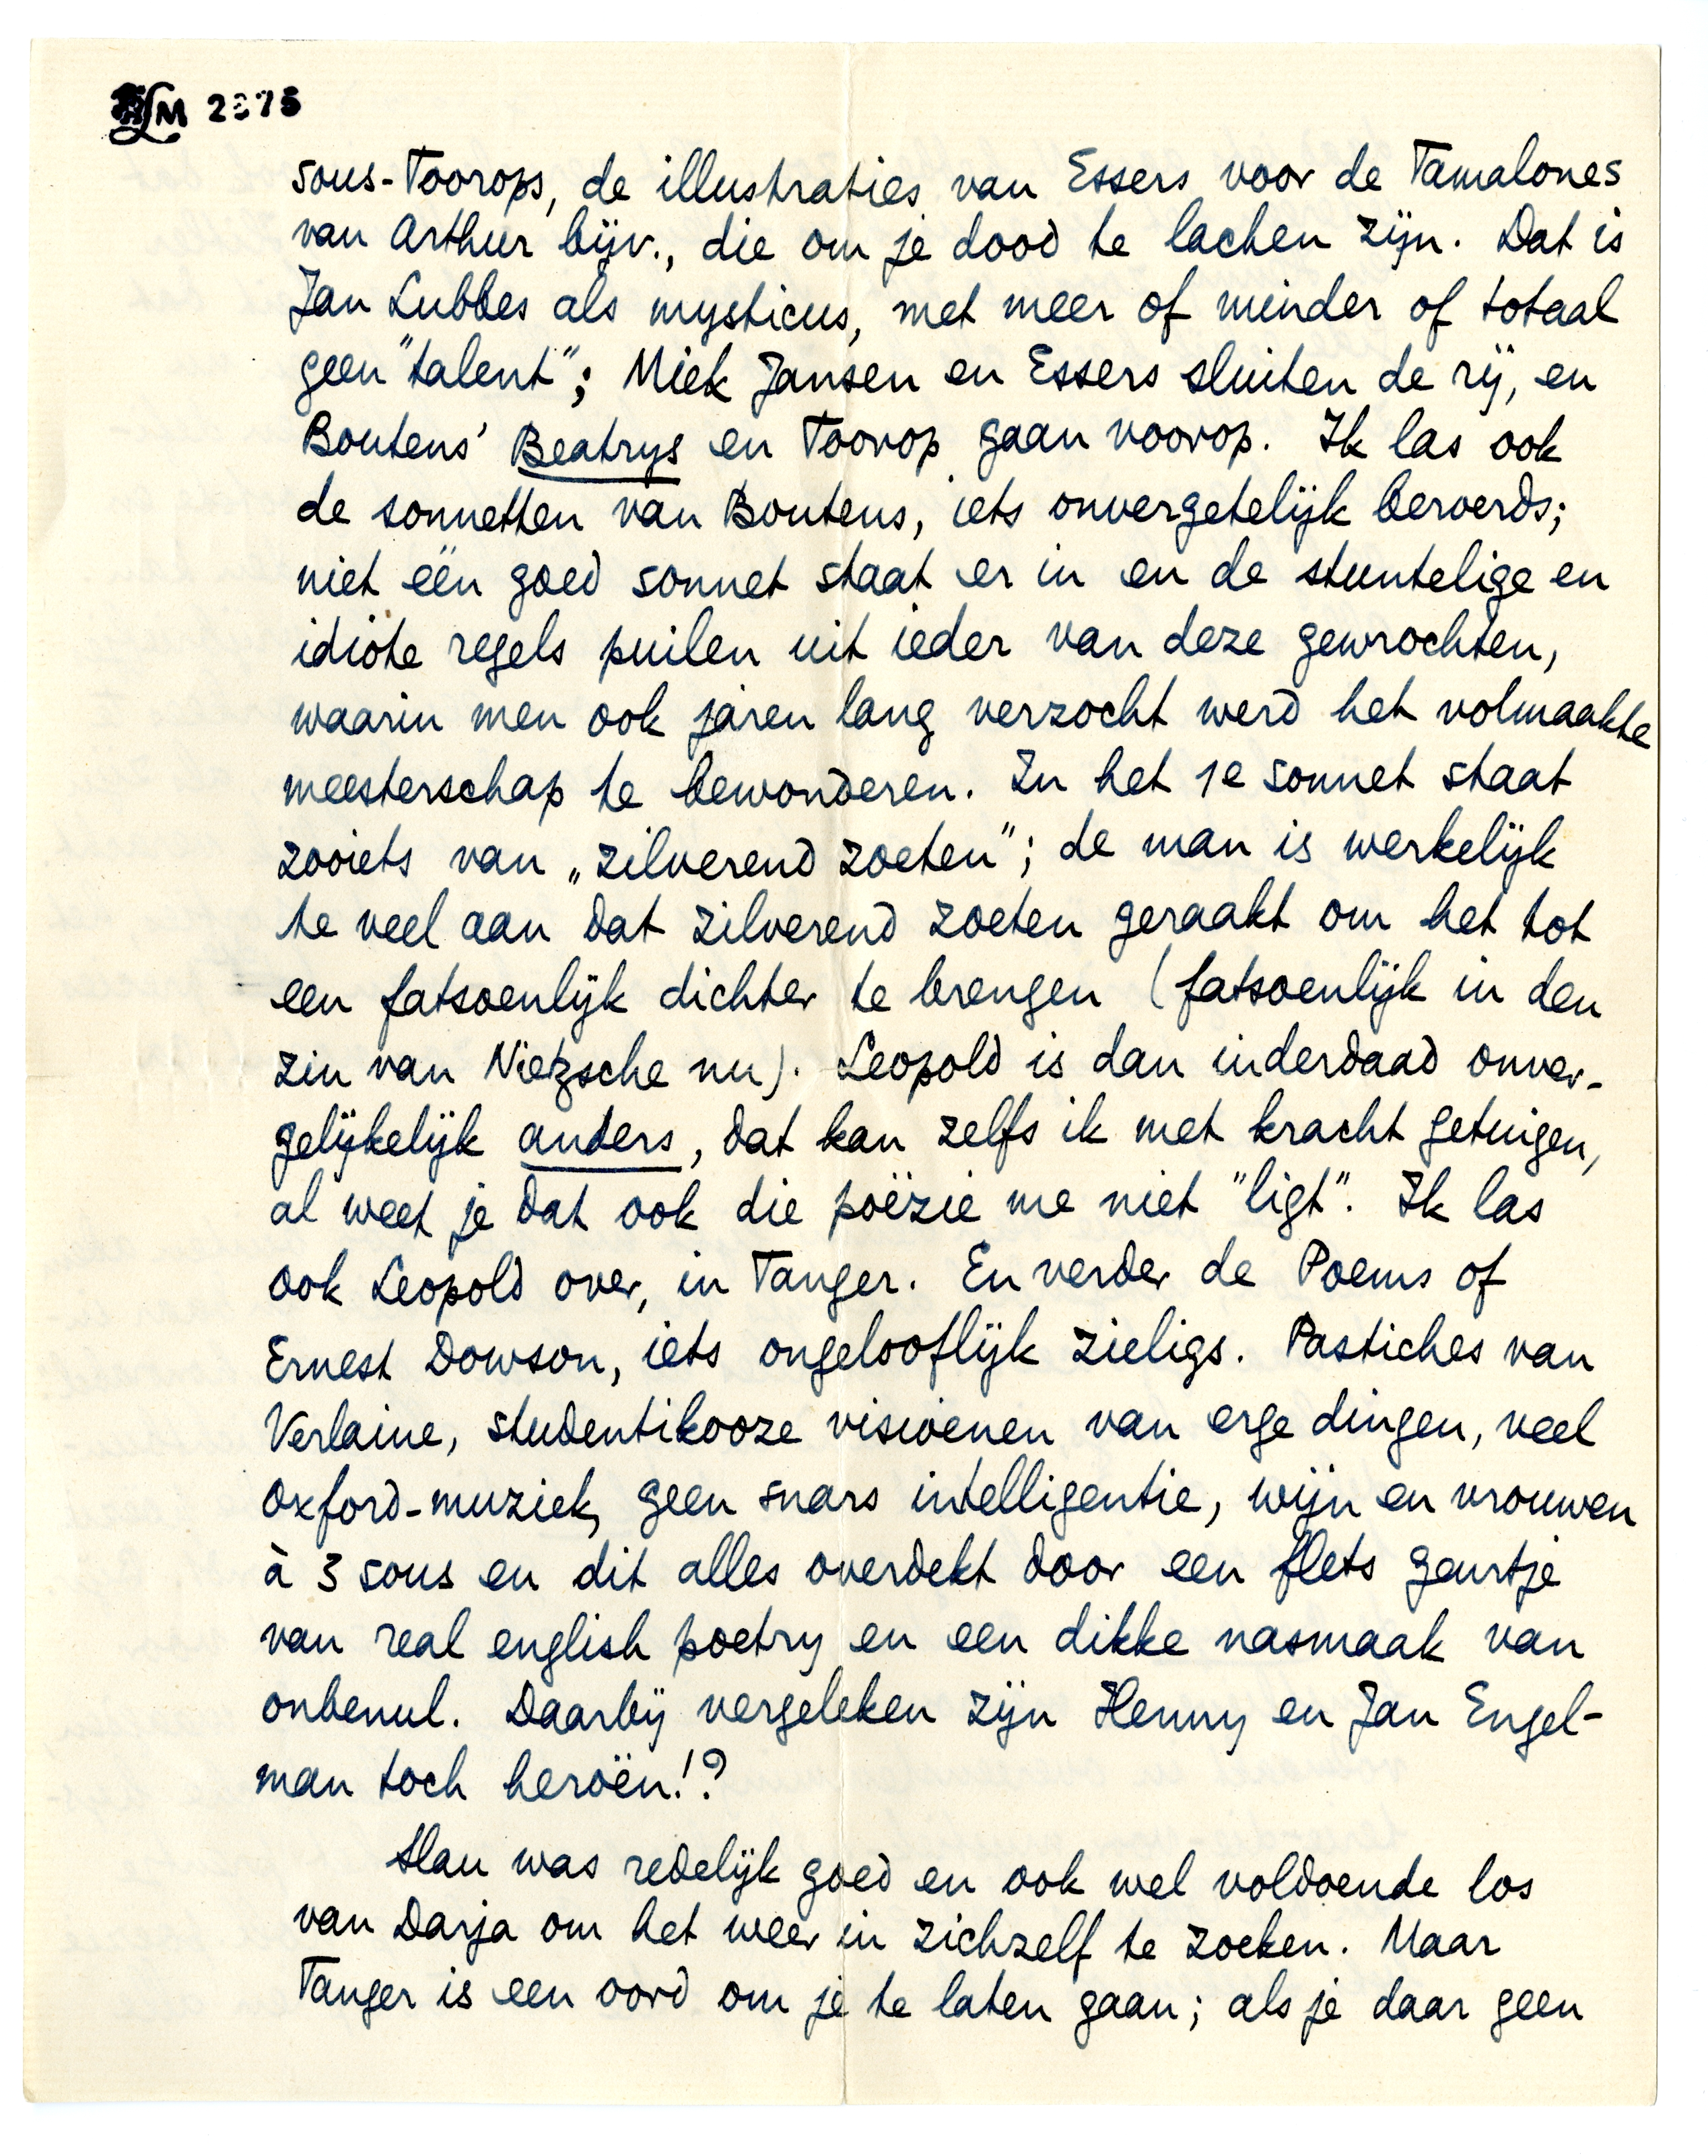 LM 2375
sous-Toorops, de illustraties van Essers voor de Tamalones
van Arthur bijv., die om je dood te lachen zijn. Dat is
Jan Lubbes als mysticus, met meer of minder of totaal
geen "talent"; Miek Jansen en Essers sluiten de rij, en
Boutens' Beatrys en Toorop gaan voorop. Ik las ook
de sonnetten van Boutens, iets onvergetelijk beroerds;
niet één goed sonnet staat er in en de stuntelige en
idiote regels puilen uit ieder van deze gewrochten,
waarin men ook jaren lang verzocht werd het volmaakte
meesterschap te bewonderen. In het 1e sonnet staat
zooiets van „zilverend zoeten"; de man is werkelijk
te veel aan dat zilverend zoeten geraakt om het tot
een fatsoenlijk dichter te brengen (fatsoenlijk in den
zin van Nietzsche nu). Leopold is dan inderdaad onver-
gelijkelijk anders, dat kan zelfs ik met kracht getuigen,
al weet je dat ook die poëzie me niet "ligt". Ik las
ook Leopold over, in Tanger. En verder de Poems of
Ernest Dowson, iets ongelooflijk zieligs. Pastiches van
Verlaine, studentikooze visioenen van erge dingen, veel
Oxford-muziek, geen snars intelligentie, wijn en vrouwen
à 3 sous en dit alles overdekt door een flets geurtje
van real english poetry en een dikke nasmaak van
onbenul. Daarbij vergeleken zijn Henny en Jan Engel-
man toch heroën!?
Slau was redelijk goed en ook wel voldoende los
van Darja om het weer in zichzelf te zoeken. Maar
Tanger is een oord om je te laten gaan; als je daar geen